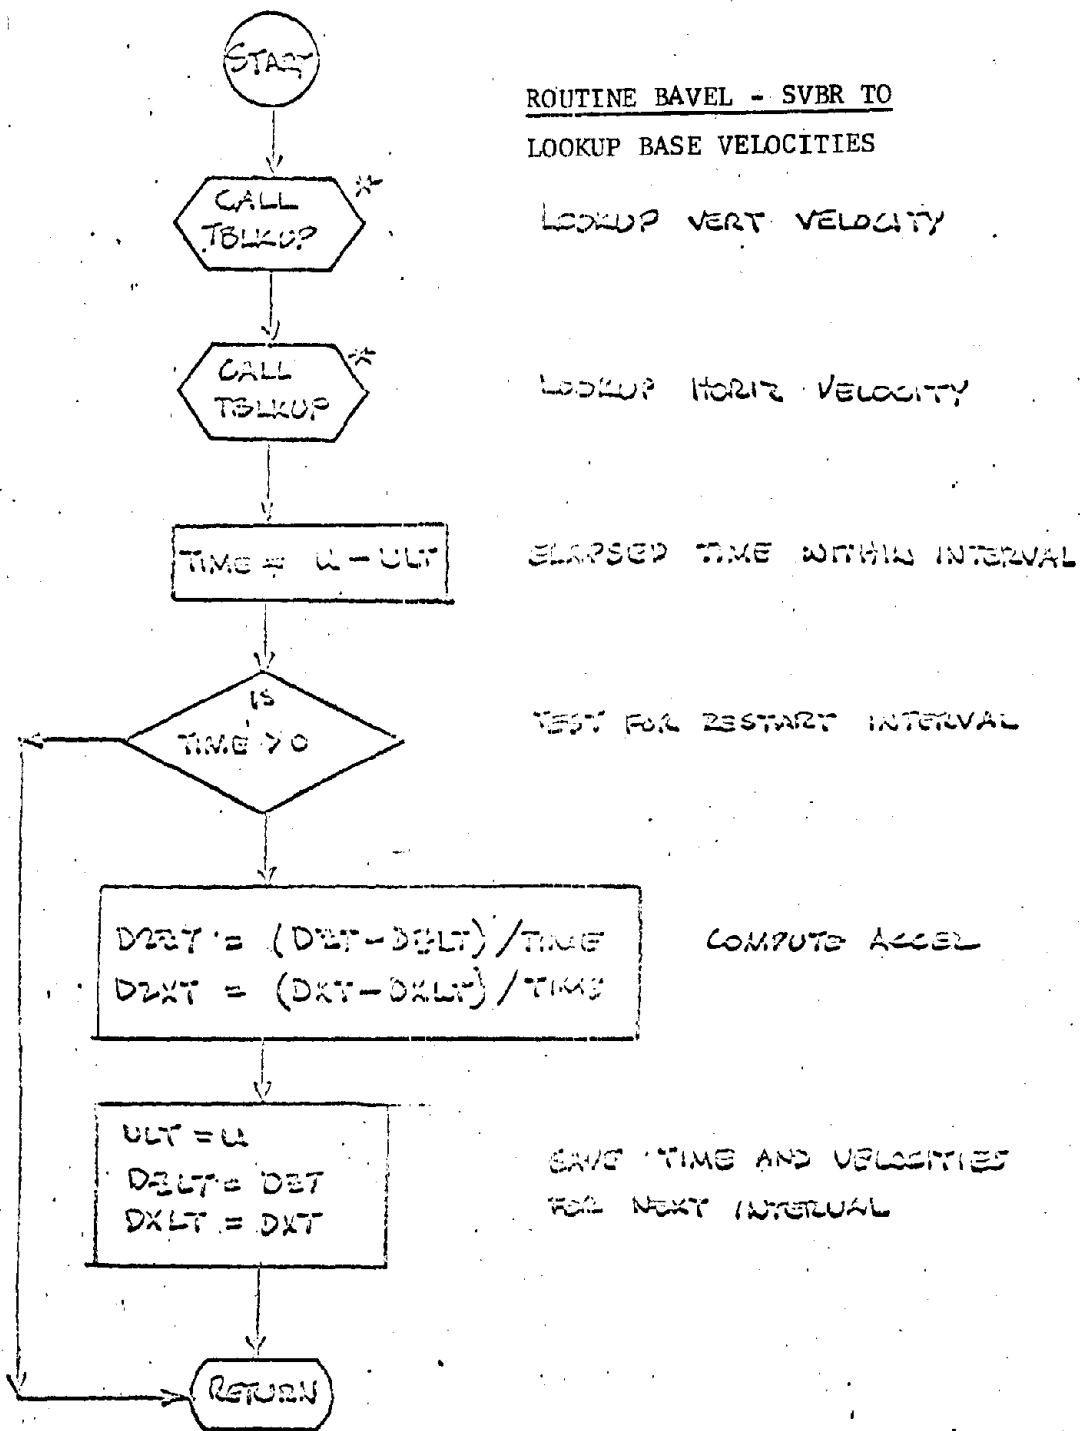 START
ROUTINE BAVEL - SVBR TO
LOOKUP BASE VELOCITIES
CALL *
TBLKUP
LOOKUP VERT VELOCITY
CALL *
TBLKUP
LOOKUP HORIZ VELOCITY
TIME = U - ULT
ELAPSED TIME WITHIN INTERVAL
IS
TIME > 0
TEST FOR RESTART INTERVAL
D2ZT = (DZT-DZLT)/TIME
D2XT = (DXT-DXLT)/TIME
COMPUTE ACCEL
ULT = U
DZLT = DZT
DXLT = DXT
SAVE TIME AND VELOCITIES
FOR NEXT INTERVAL
RETURN